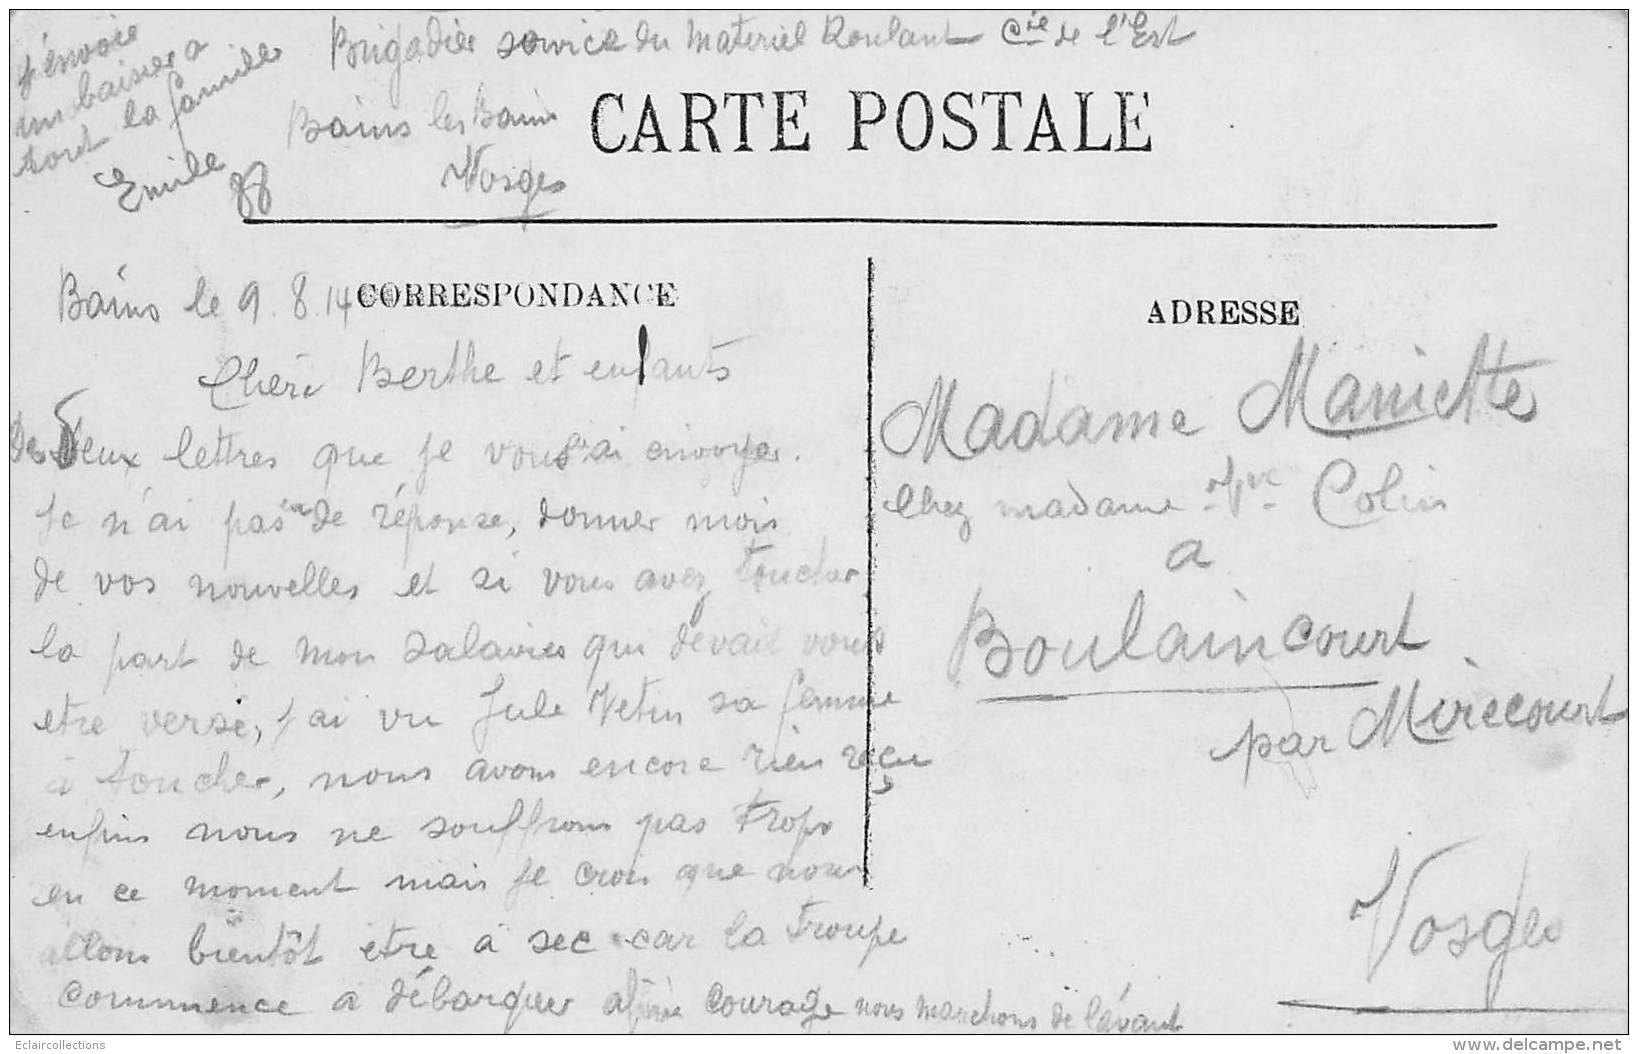 J'envoie
un baiser a
tout la famille
Emile
Brigadier service du Materiel Roulant Cie de l'Est
Bains les Bains
Vosges
CARTE POSTALE
CORRESPONDANCE
Bains le 9.8.14
Chère Berthe et enfants
Des deux lettres que je vous ai envoyer.
Je n'ai pas eu de réponse, donner mois
de vos nouvelles et si vous avez toucher
la part de mon salaires qui devait vous
etre verse, j'ai vu Jule sa femme
à toucher, nous avons encore rien reçu
enfin nous ne souffrons pas trop
en ce moment mais je crois que nous
allons bientôt etre à sec car la troupe
commence a débarquer courage nous marchons de l'avant
ADRESSE
Madame Mariette
Chez madame Vve Colin
a
Boulaincourt
par Mirecourt
Vosges
Eclaircollections
www.delcampe.net